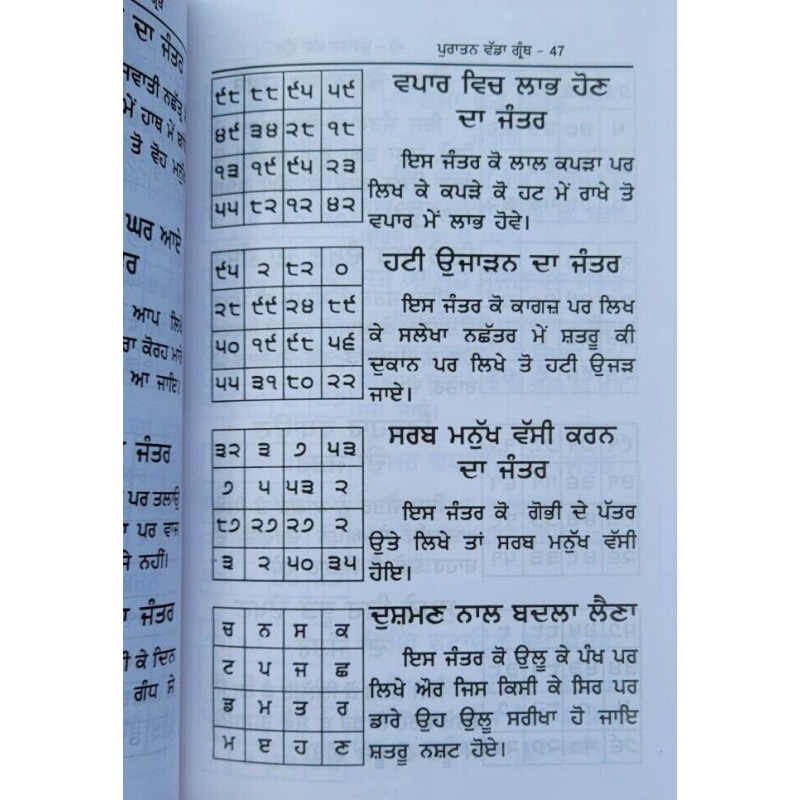 ਗ੍ਰੰਥ
ਦਾ ਜੰਤਰ
ਸਵਾਤੀ ਨਛੱਤ੍ਰ
ਮੇਂ ਹਾਥ ਮੇਂ
ਤੋ ਵੋਹ
ਘਰ ਆਏ
ਆਪ ਲਿਖੇ
ਕੋਰਹ
ਆ ਜਾਇ।
ਜੰਤਰ
ਪਰ ਤਲਾਉ
ਪਰ ਵਾਜ
ਸੇ ਨਹੀਂ।
ਦਾ ਜੰਤਰ
ਕੇ ਦਿਨ
ਗੰਧ ਸੇ
ਪੁਰਾਤਨ ਵੱਡਾ ਗ੍ਰੰਥ - 47
੯੮ ੮੮ ੯੫ ੫੯
੪੯ ੩੪ ੨੮ ੧੮
੧੩ ੧੯ ੯੫ ੨੩
੫੫ ੮੨ ੧੨ ੪੨
ਵਪਾਰ ਵਿਚ ਲਾਭ ਹੋਣ
ਦਾ ਜੰਤਰ
ਇਸ ਜੰਤਰ ਕੋ ਲਾਲ ਕਪੜਾ ਪਰ
ਲਿਖ ਕੇ ਕਪੜੇ ਕੋ ਹਟ ਮੇਂ ਰਾਖੇ ਤੋ
ਵਪਾਰ ਮੇਂ ਲਾਭ ਹੋਵੇ।
੯੫ ੨ ੮੨ ੦
੨੮ ੯੯ ੨੪ ੮੯
੫੦ ੧੯ ੯੮ ੫੬
੫੫ ੩੧ ੮੦ ੨੨
ਹਟੀ ਉਜਾੜਨ ਦਾ ਜੰਤਰ
ਇਸ ਜੰਤਰ ਕੋ ਕਾਗਜ਼ ਪਰ ਲਿਖ
ਕੇ ਸਲੇਖਾ ਨਛੱਤਰ ਮੇਂ ਸ਼ਤਰੂ ਕੀ
ਦੁਕਾਨ ਪਰ ਲਿਖੇ ਤੋ ਹਟੀ ਉਜੜ
ਜਾਏ।
੩੨ ੩ ੭ ੫੩
੭ ੫ ੫੩ ੨
੮੭ ੨੭ ੨੭ ੨
੩ ੨ ੫੦ ੩੫
ਸਰਬ ਮਨੁੱਖ ਵੱਸੀ ਕਰਨ
ਦਾ ਜੰਤਰ
ਇਸ ਜੰਤਰ ਕੋ ਗੋਭੀ ਦੇ ਪੱਤਰ
ਉਤੇ ਲਿਖੇ ਤਾਂ ਸਰਬ ਮਨੁੱਖ ਵੱਸੀ
ਹੋਇ।
ਚ ਨ ਸ ਕ
ਟ ਪ ਜ ਛ
ਡ ਮ ਤ ਰ
ਮ ੲ ਹ ਣ
ਦੁਸ਼ਮਣ ਨਾਲ ਬਦਲਾ ਲੈਣਾ
ਇਸ ਜੰਤਰ ਕੋ ਉਲੂ ਕੇ ਪੰਖ ਪਰ
ਲਿਖੇ ਔਰ ਜਿਸ ਕਿਸੀ ਕੇ ਸਿਰ ਪਰ
ਡਾਰੇ ਉਹ ਉਲੂ ਸਰੀਖਾ ਹੋ ਜਾਇ
ਸ਼ਤਰੂ ਨਸ਼ਟ ਹੋਏ।